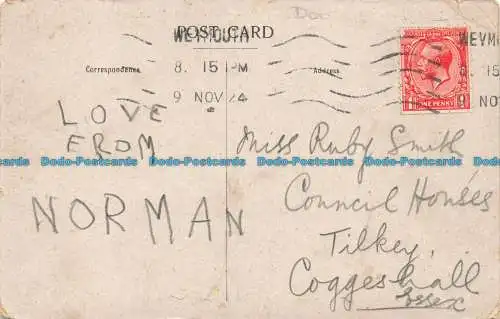 Doc
POST CARD
WEYMOUTH
8. 15 PM
9 NOV 24
Correspondence
Address
WEYM
8. 15
9 NOV
ONE PENNY
LOVE
FROM
NORMAN
Miss Ruby Smith
Council Houses
Tilkey,
Coggeshall
Essex
Dodo-Postcards Dodo-Postcards Dodo-Postcards Dodo-Postcards Dodo-Postcards